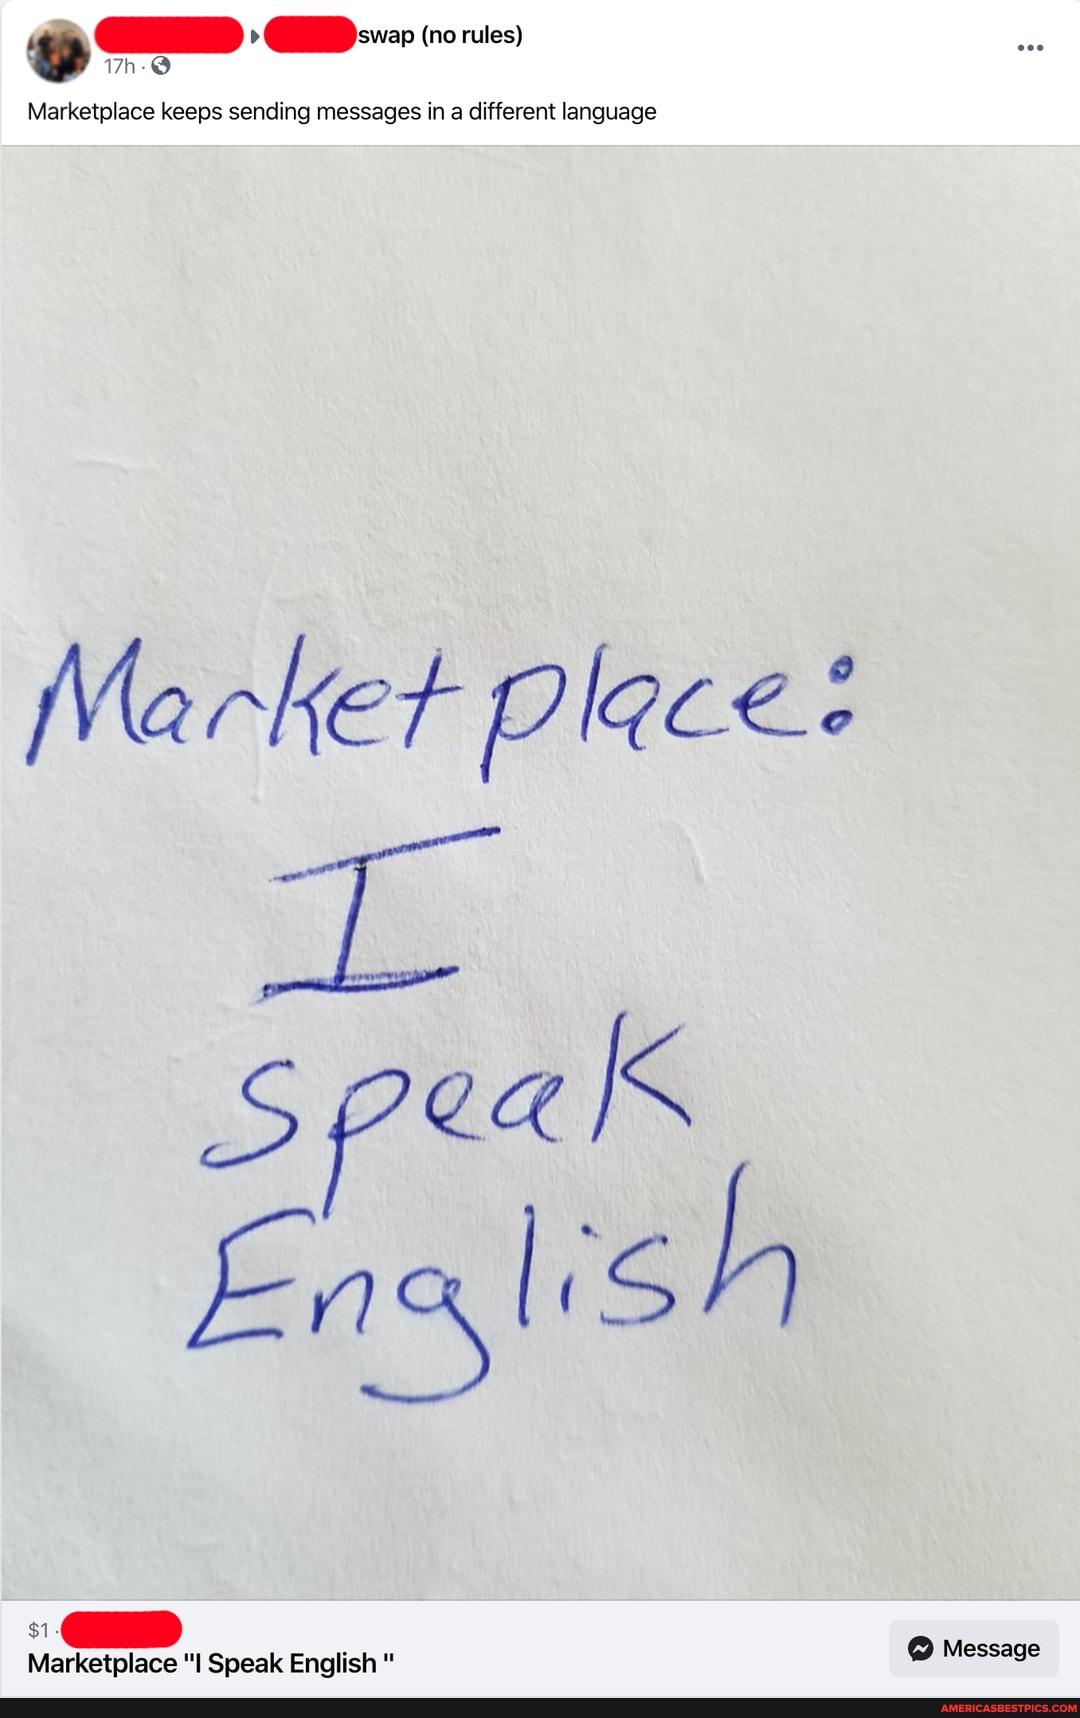 swap (no rules)
17h ·
Marketplace keeps sending messages in a different language
Marketplace:
I
speak
English
$1 ·
Marketplace "I Speak English "
Message
AMERICASBESTPICS.COM